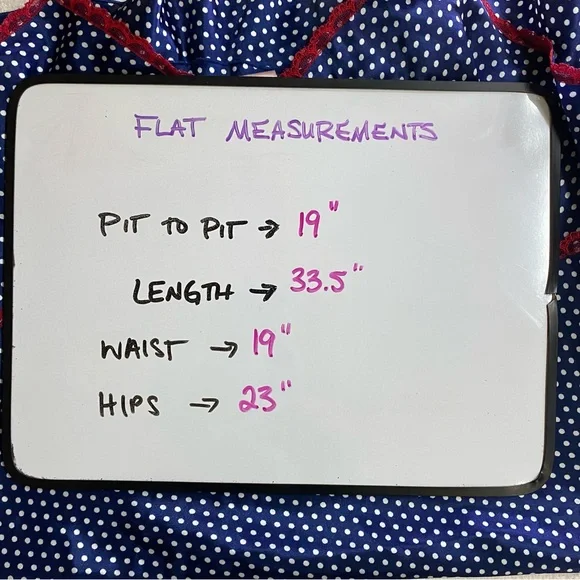 FLAT MEASUREMENTS
PIT TO PIT → 19"
LENGTH → 33.5"
WAIST → 19"
HIPS → 23"